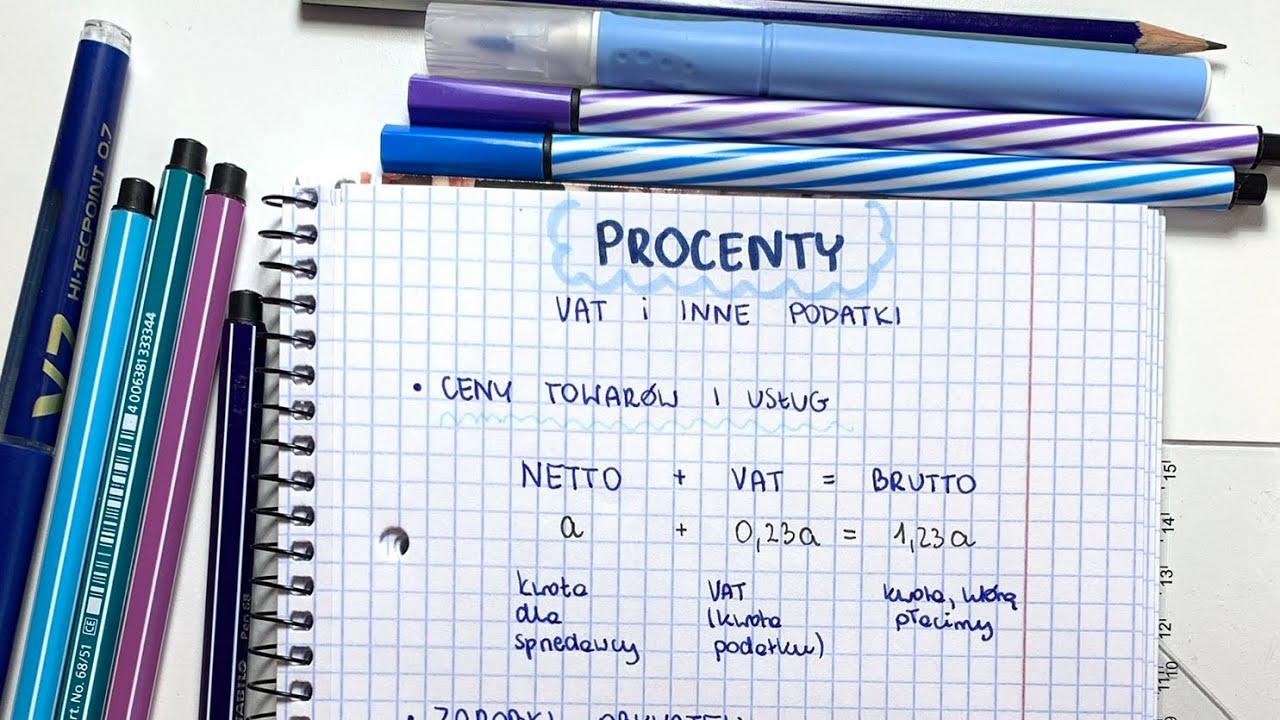 PROCENTY
VAT i INNE PODATKI
• CENY TOWARÓW I USŁUG
NETTO + VAT = BRUTTO
a + 0,23a = 1,23a
kwota VAT kwota, którą
dla (kwota płacimy
sprzedawcy podatku)
V7 HI-TECPOINT 0.7
4 006381 333344
Art. No. 68/51 CE
Pen 68
15
14
13
12
11
10